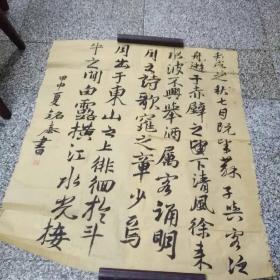 壬戌之秋七月既望苏子与客泛
舟游于赤壁之下清风徐来
水波不兴举酒属客诵明
月之诗歌窕之章少焉
月出于东山之上徘徊于斗
牛之间白露横江水光接
甲申夏铭泰书